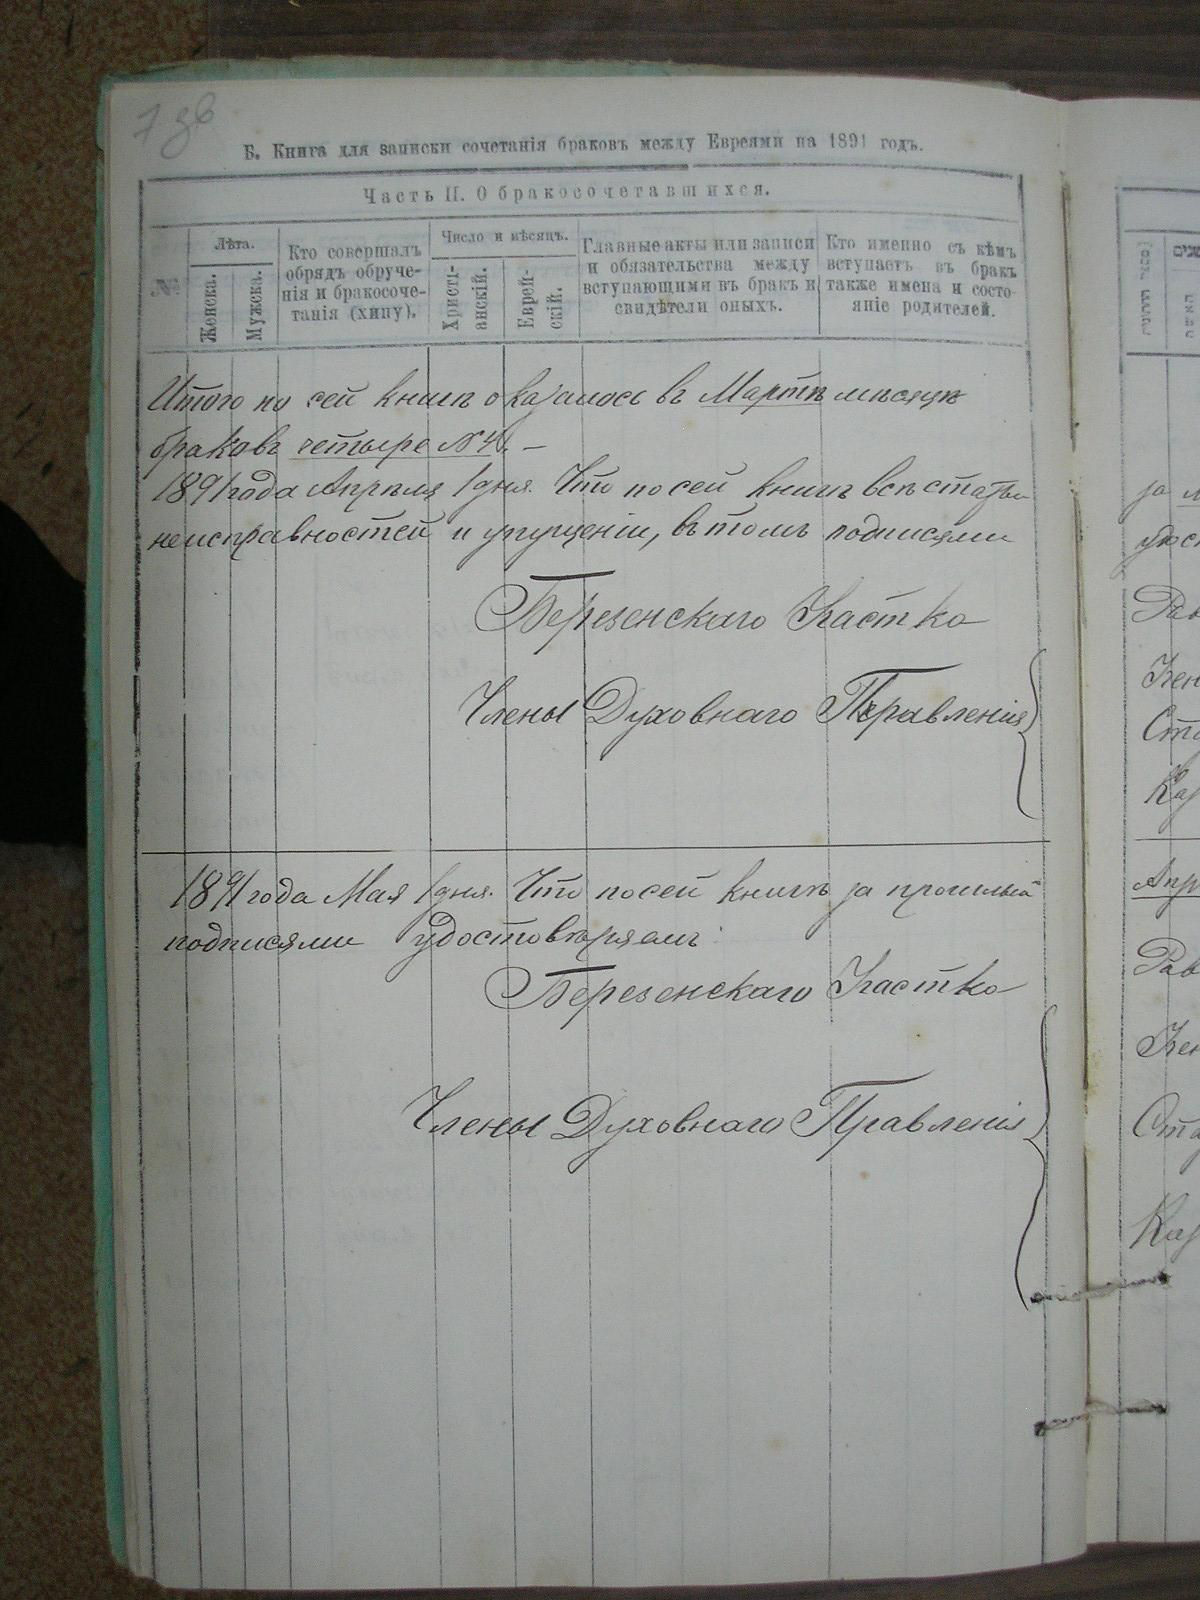 7 зв
Б. Книга для записки сочетанія браковъ между Евреями на 1891 годъ.
Часть II. О бракосочетавшихся.
№
Лѣта.
Женска.
Мужска.
Кто совершалъ
обрядъ обруче-
нія и бракосоче-
танія (хипу).
Число и мѣсяцъ.
Христі-
анскій.
Еврей-
скій.
Главные акты или записи
и обязательства между
вступающими въ бракъ и
свидѣтели оныхъ.
Кто именно съ кѣмъ
вступаетъ въ бракъ
также имена и состо-
яніе родителей.
Итого по сей книгѣ оказалось въ Мартѣ мѣсяцѣ
браковъ четыре №4. —
1891 года Апрѣля 1 дня. Что по сей книгѣ всѣ статьи
неисправностей и упущеній, въ томъ подписями
Березенскаго Участко
Члены Духовнаго Правленія
1891 года Мая 1 дня. Что по сей книгѣ за прошлый
подписями удостовѣряемъ:
Березенскаго Участко
Члены Духовнаго Правленія
за
Рав
Ста
Каз
Апр
Рав
Ста
Каз